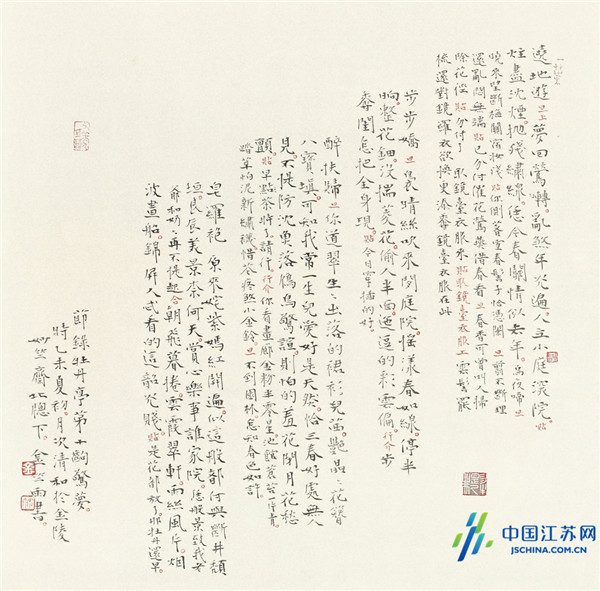 遶地遊 旦上 夢回鶯轉。亂煞年光遍。人立小庭深院。貼
炷盡沈煙。拋殘繡線。恁今春關情似去年。烏夜啼 旦
曉來望斷梅關宿妝殘 貼 你側著宜春髻子恰憑闌 旦 翦不斷理
還亂悶無端 貼 已分付催花鶯燕借春看 旦 春香可曾叫人掃
除花徑 貼 分付了 取鏡臺衣服來 貼取鏡臺衣服上 雲髻罷
梳還對鏡羅衣欲換更添香鏡臺衣服在此
步步嬌 旦 裊晴絲吹來閒庭院。搖漾春如線。停半
晌。整花鈿。沒揣菱花。偷人半面。迤逗的彩雲偏。行介 步
香閨怎把全身現。貼 今日穿插的好。
醉扶歸 旦 你道翠生生出落的裙衫兒茜。艷晶晶花簪
八寶填。可知我常一生兒愛好是天然。恰三春好處無人
見。不提防沈魚落鴈鳥驚諠。則怕的羞花閉月花愁
顫。貼 早茶時了請行。行介 你看畫廊金粉半零星池館蒼苔一片青
踏草怕泥新繡襪惜花疼煞小金鈴 旦 不到園林怎知春色如許
皂羅袍 原來姹紫嫣紅開遍。似這般都付與斷井頹
垣。良辰美景奈何天賞心樂事誰家院。恁般景致我老
爺和奶奶再不提起 合 朝飛暮捲。雲霞翠軒。雨絲風片。煙
波畫船。錦屏人忒看的這韶光賤。貼 是花都放了。那牡丹還早。
節錄牡丹亭第十齣驚夢。
時乙未夏初。月次清和於金陵
齋北窗下。金 雨書。
中国江苏网
JSCHINA.COM.CN